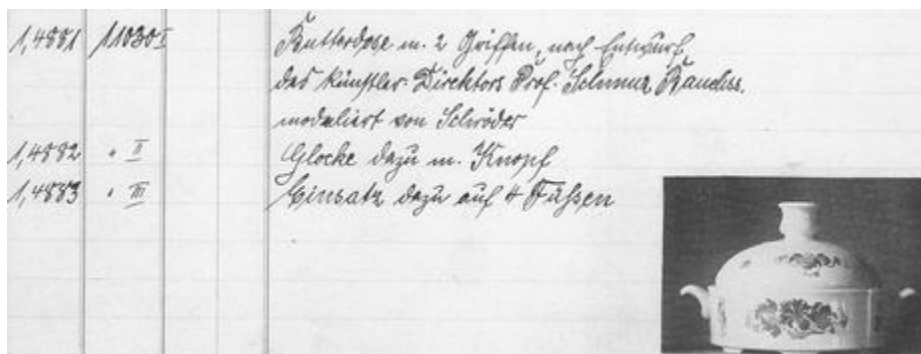 1,4881 11030 I Butterdose m. 2 Griffen, nach Entwurf
des künstler. Direktors Prof. Schmuz Baudiss,
modeliert von Schröder
1,4882 " II Glocke dazu m. Knopf
1,4883 " III Einsatz dazu auf 4 Füßen